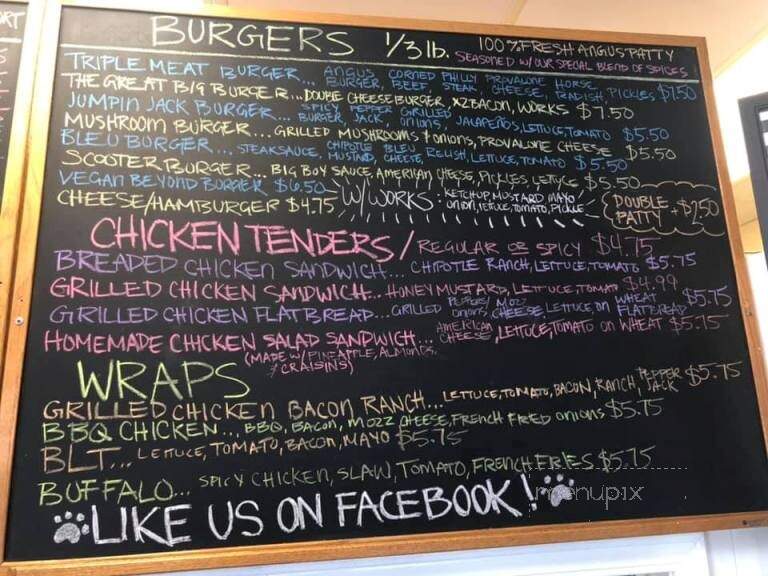 RT
BURGERS 1/3 lb. 100% FRESH ANGUS PATTY
SEASONED W/ OUR SPECIAL BLEND OF SPICES
TRIPLE MEAT BURGER... ANGUS BURGER, CORNED BEEF, PHILLY STEAK, PROVALONE CHEESE, HORSE RADISH, PICKLES $7.50
THE GREAT BIG BURGER... DOUBLE CHEESE BURGER, X2 BACON, WORKS $7.50
JUMPIN JACK BURGER... SPICY BURGER, PEPPER JACK, GRILLED ONIONS, JALAPEÑOS, LETTUCE, TOMATO $5.50
MUSHROOM BURGER... GRILLED MUSHROOMS & ONIONS, PROVALONE CHEESE $5.50
BLEU BURGER... STEAKSAUCE, CHIPOTLE MUSTARD, BLEU CHEESE, RELISH, LETTUCE, TOMATO $5.50
SCOOTER BURGER... BIG BOY SAUCE, AMERICAN CHEESE, PICKLES, LETTUCE $5.50
VEGAN BEYOND BURGER $6.50
CHEESE/HAMBURGER $4.75 W/ WORKS: KETCHUP, MUSTARD, MAYO ONION, LETTUCE, TOMATO, PICKLE
DOUBLE PATTY +$2.50
CHICKEN TENDERS / REGULAR OR SPICY $4.75
BREADED CHICKEN SANDWICH... CHIPOTLE RANCH, LETTUCE, TOMATO $5.75
GRILLED CHICKEN SANDWICH... HONEY MUSTARD, LETTUCE, TOMATO $4.99
GRILLED CHICKEN FLATBREAD... GRILLED PEPPERS/ONIONS, MOZZ CHEESE, LETTUCE, ON WHEAT FLATBREAD $5.75
HOMEMADE CHICKEN SALAD SANDWICH... AMERICAN CHEESE, LETTUCE, TOMATO ON WHEAT $5.75
(MADE W/ PINEAPPLE, ALMONDS, & CRAISINS)
WRAPS
GRILLED CHICKEN BACON RANCH... LETTUCE, TOMATO, BACON, RANCH, PEPPER JACK $5.75
BBQ CHICKEN... BBQ, BACON, MOZZ CHEESE, FRENCH FRIED ONIONS $5.75
BLT... LETTUCE, TOMATO, BACON, MAYO $5.75
BUFFALO... SPICY CHICKEN, SLAW, TOMATO, FRENCH FRIES $5.75
LIKE US ON FACEBOOK!
menupix